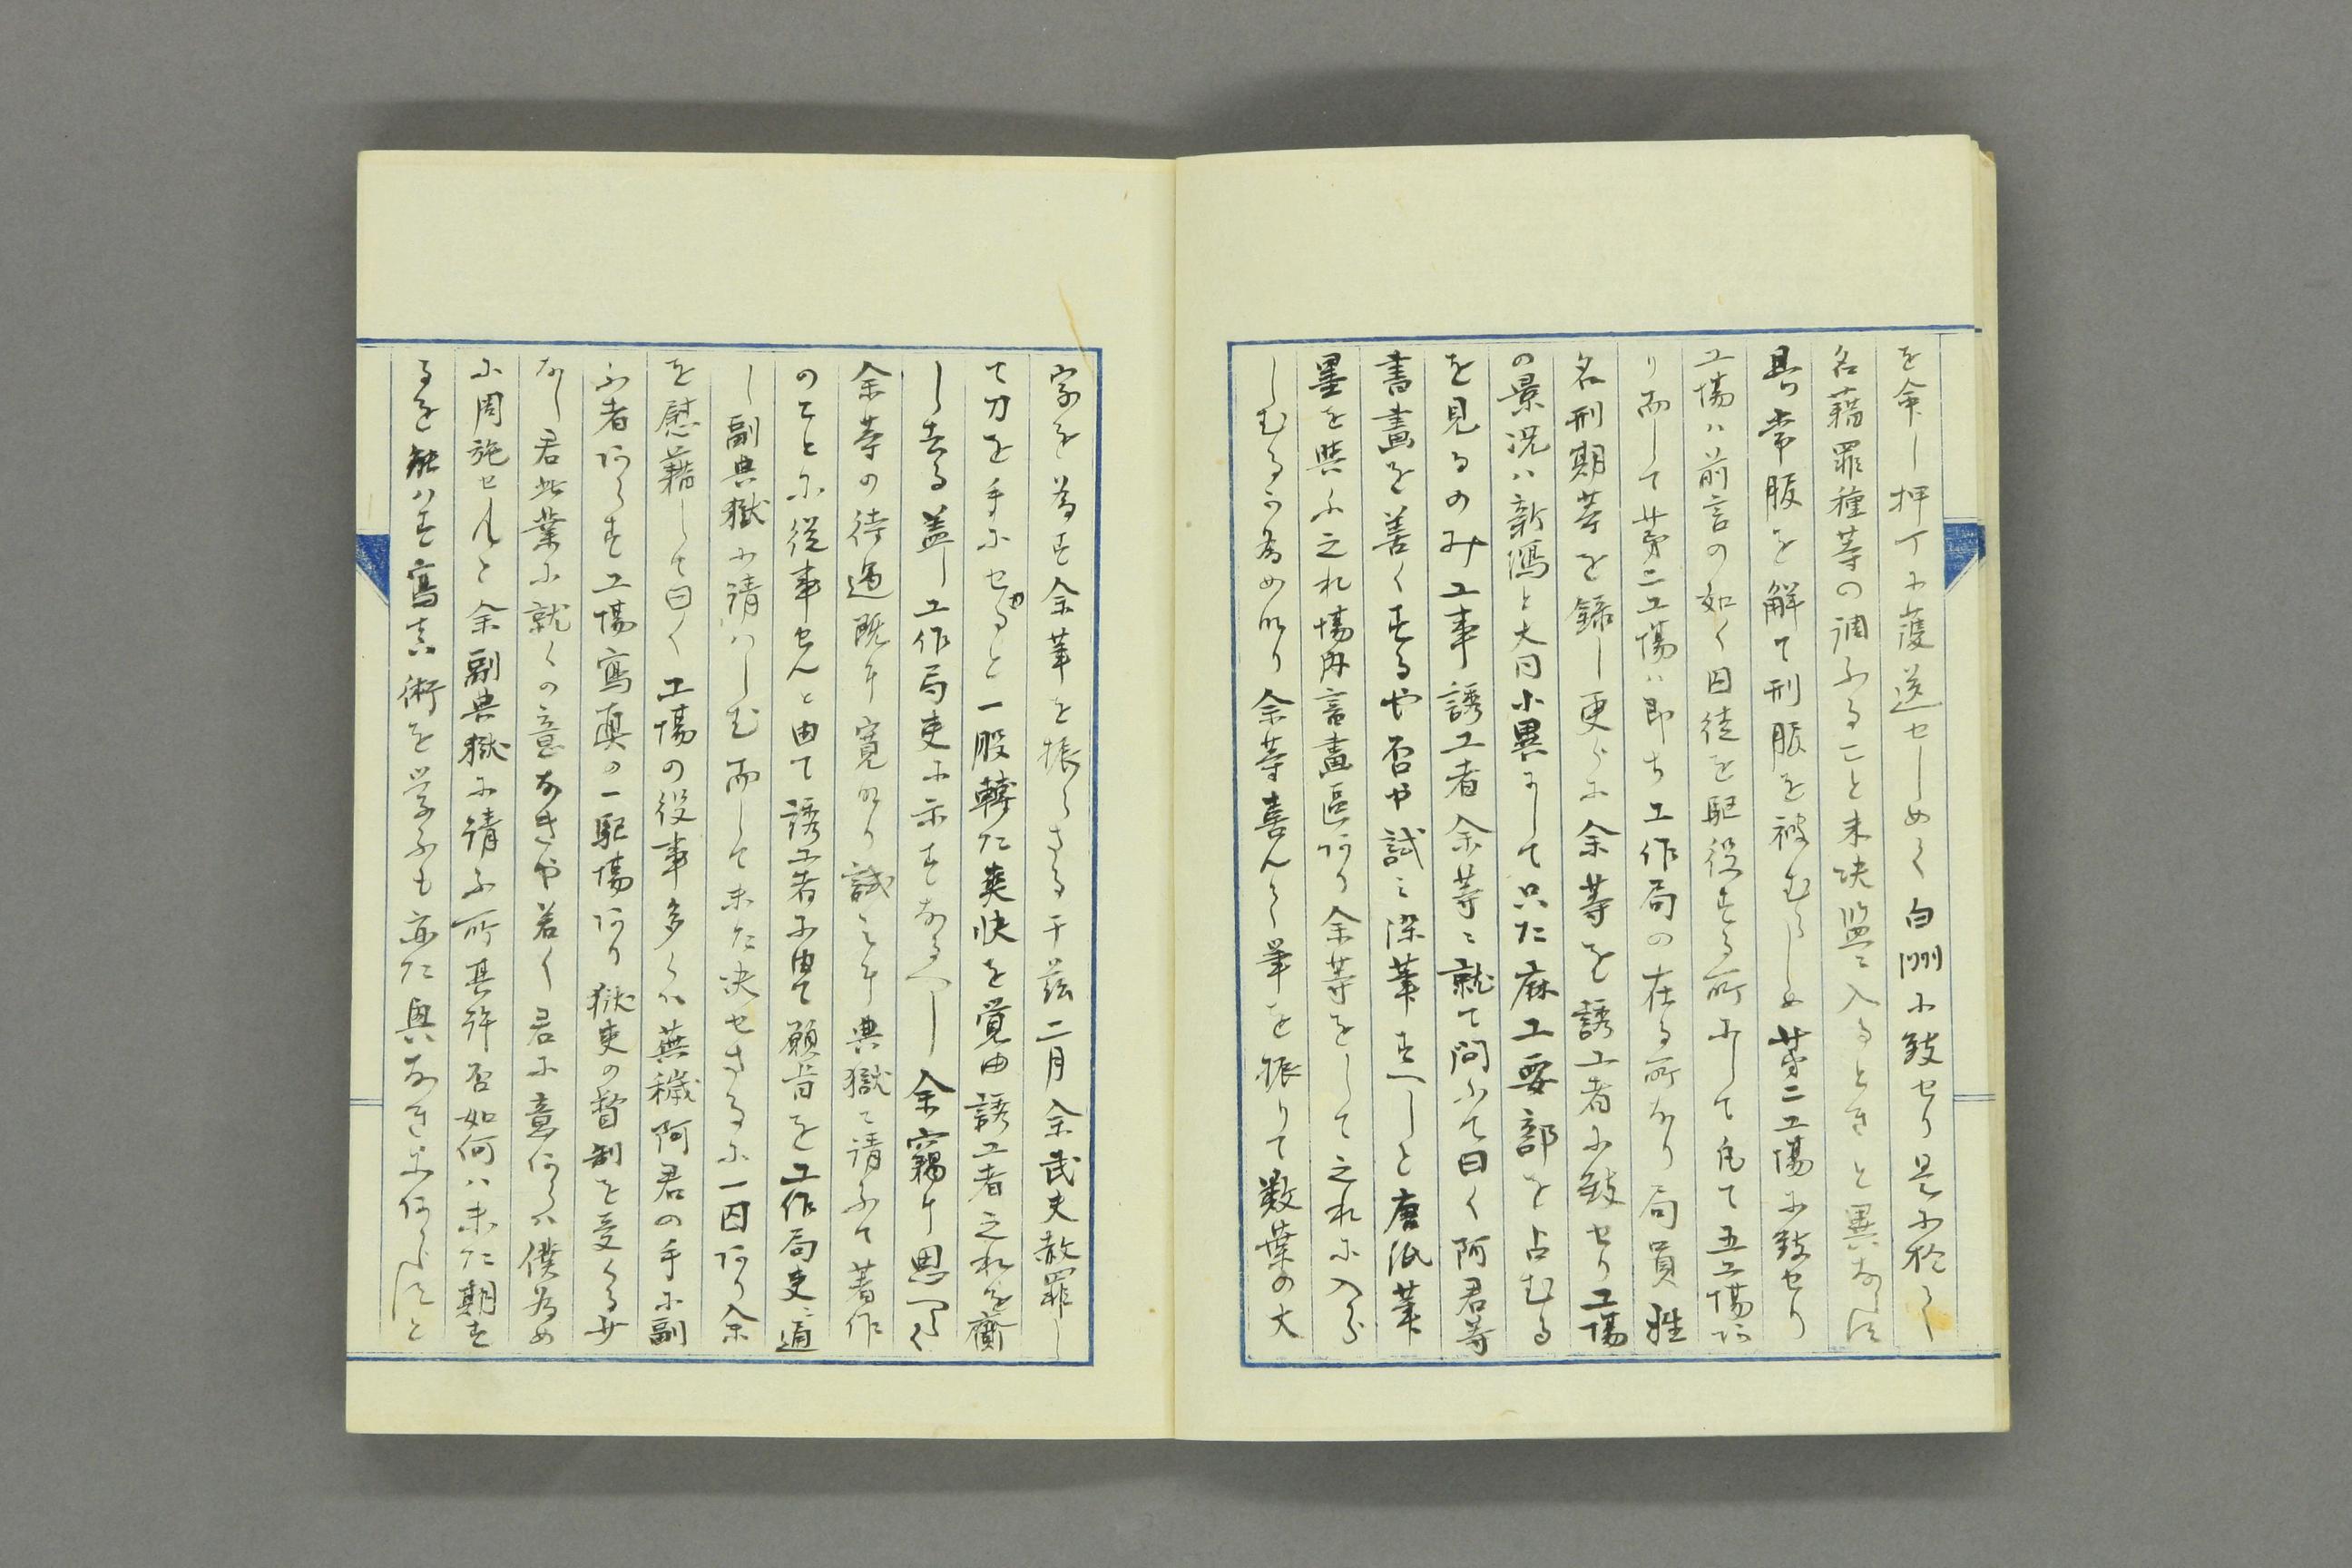 を命し押丁に護送せしめて白洲に致せり是に於て
名籍罪種等の調ふること未決監に入るときと異なら須
畢常服を解て刑服を被むらしめ第二工場に致せり
工場ハ前言の如く囚徒を駆役する所にして凡て五工場あ
り而して第二工場ハ即ち工作局の在る所なり局員姓
名刑期等を録し更らに余等を誘工者に致せり工場
の景況ハ新潟と大同小異にして只た麻工要部を占むる
を見るのみ工事誘工者余等に就て問ふて曰く阿君等
書畫を善くするや否や試に深筆すへしと唐紙筆
墨を與ふ之れ場内書畫區あり余等をして之れに入ら
しむるか為めなり余等喜んて筆を振りて数葉の大
字を為す余筆を振らさる干茲二月余武夫赦罪し
て刀を手にせると一股轉た爽快を覚由誘工者之れを齎
し去る盖し工作局吏に示すなるへし余竊に思へらく
余等の待過既に寛なり試みに典獄に請ふて著作
のことに従事せんと由て誘工者に由て願旨を工作局吏に通
し副典獄に請ハしむ而して未た决せさるに一囚あり余
を慰藉して曰く工場の役事多くハ蕪穢阿君の手に副
ふ者あらす工場寫真の一駆場あり獄吏の督制を受くる少
なし君此業に就くの意なきや若く君に意あらハ僕為め
に周施せんと余副典獄に請ふ所其許否如何ハ未た期す
るを能ハす寫真術を学ふも亦た興なきにあら須と